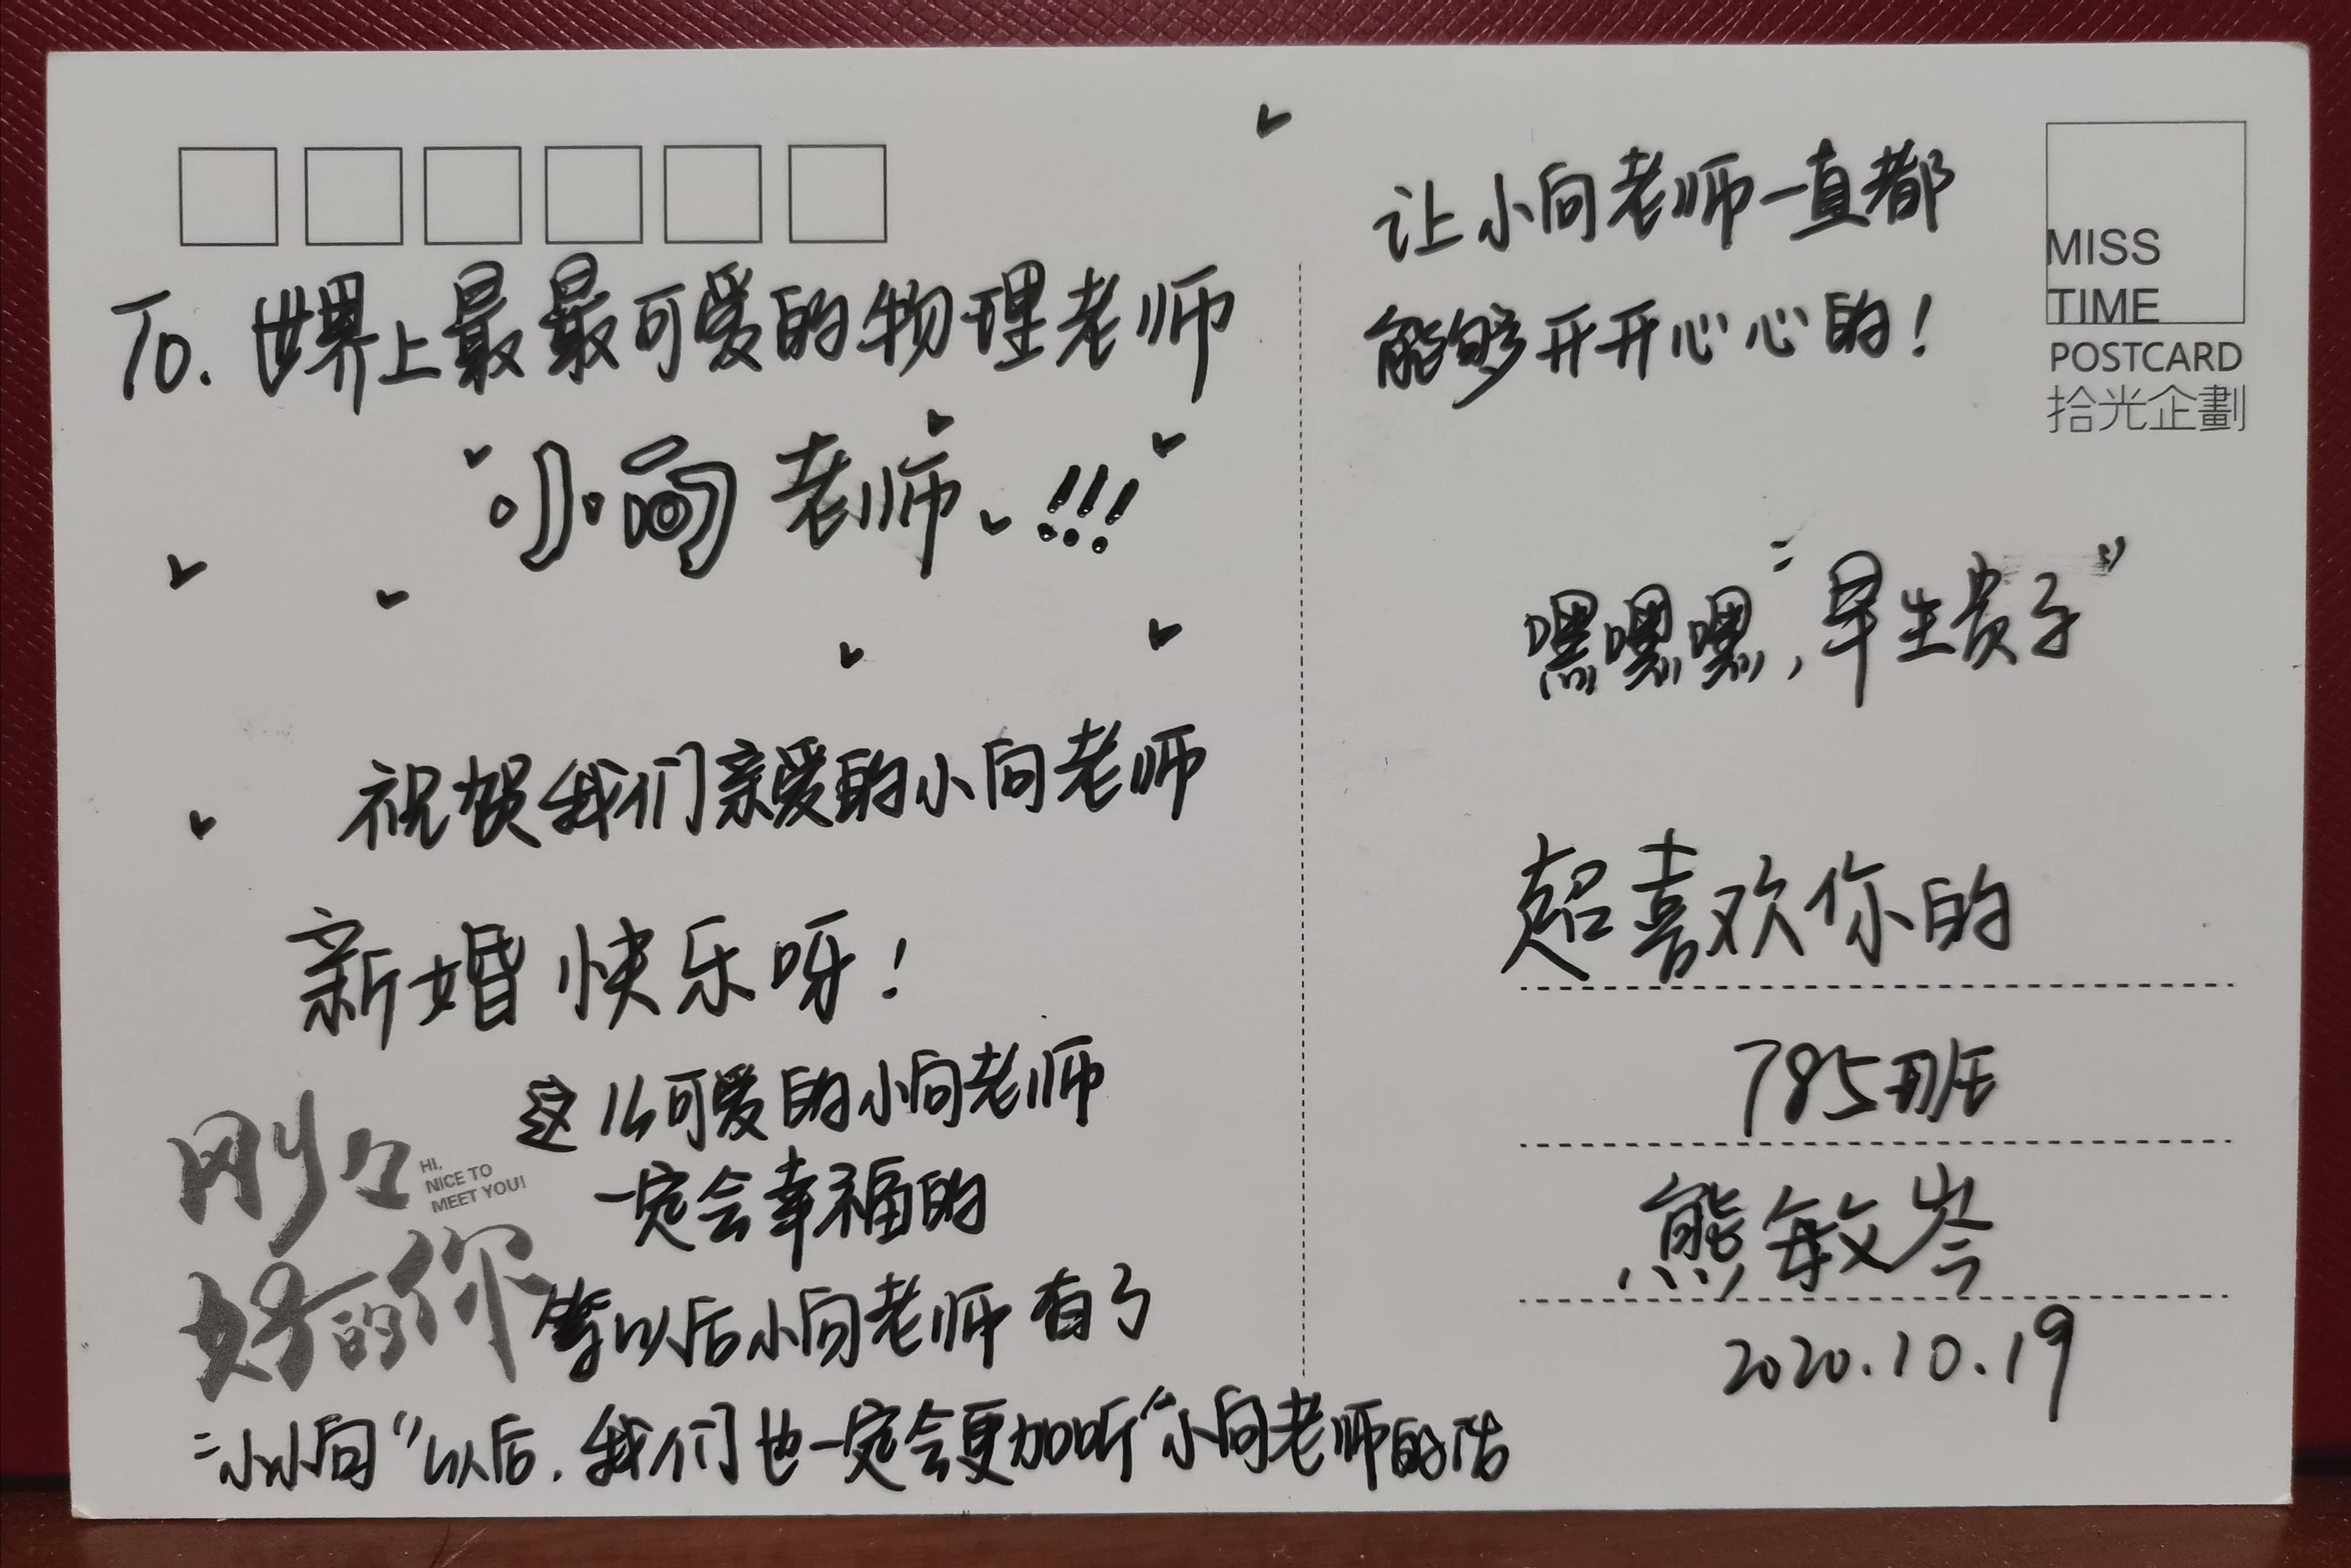 To. 世界上最最可爱的物理老师
小向老师!!!
祝贺我们亲爱的小向老师
新婚快乐呀!
这么可爱的小向老师
一定会幸福的
等以后小向老师有了
“小小向”以后,我们也一定会更加听“小向老师的话
刚々
好的你
HI,
NICE TO
MEET YOU!
让小向老师一直都
能够开开心心的!
嘿嘿嘿,“早生贵子”
超喜欢你的
785班
熊敏岑
2020.10.19
MISS
TIME
POSTCARD
拾光企劃